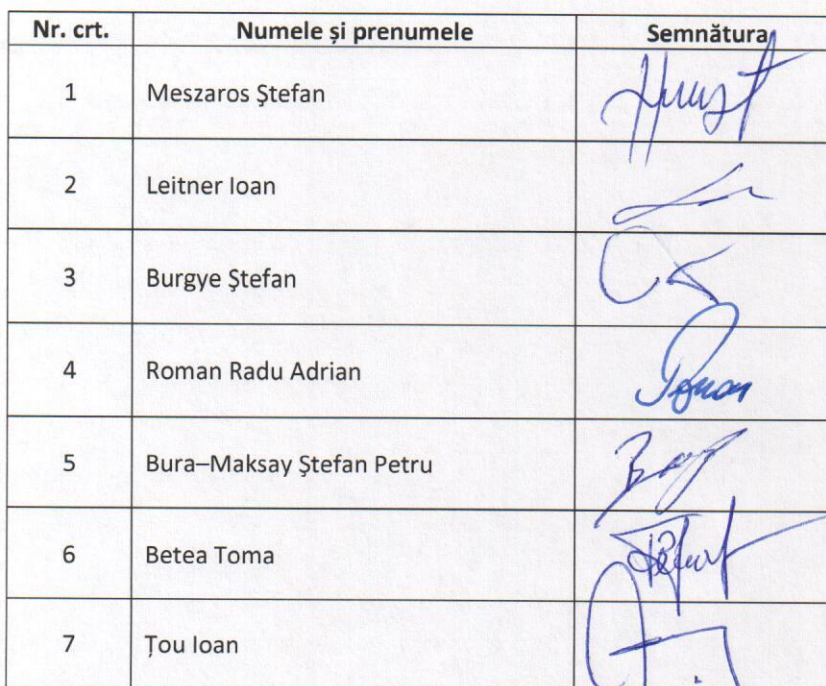 Nr. crt. Numele și prenumele Semnătura
1 Meszaros Ștefan
2 Leitner Ioan
3 Burgye Ștefan
4 Roman Radu Adrian
5 Bura–Maksay Ștefan Petru
6 Betea Toma
7 Țou Ioan